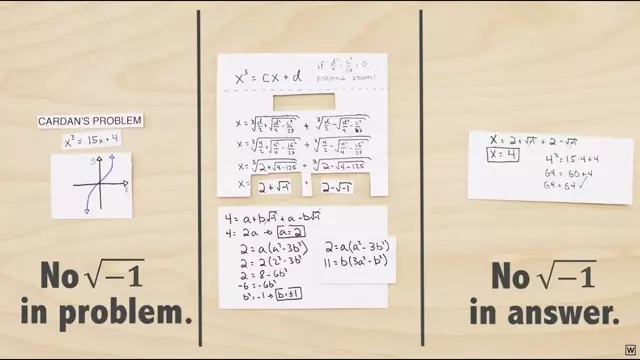 CARDAN'S PROBLEM
x³ = 15x + 4
y
x
No √-1
in problem.
x³ = cx + d
if d²/4 - c³/27 < 0
FORMULA BREAKS!
x = ∛(d/2 + √(d²/4 - c³/27)) + ∛(d/2 - √(d²/4 - c³/27))
x = ∛(4/2 + √(4²/4 - 15³/27)) + ∛(4/2 - √(4²/4 - 15³/27))
x = ∛(2 + √(4 - 125)) + ∛(2 - √(4 - 125))
x = 2 + √-1 + 2 - √-1
4 = a + b√-1 + a - b√-1
4 = 2a → a = 2
2 = a(a² - 3b²)
2 = 2(2² - 3b²)
2 = 8 - 6b²
-6 = -6b²
b² = 1 → b = ±1
2 = a(a² - 3b²)
11 = b(3a² - b²)
x = 2 + √-1 + 2 - √-1
x = 4
4³ = 15·4 + 4
64 = 60 + 4
64 = 64 ✓
No √-1
in answer.
W